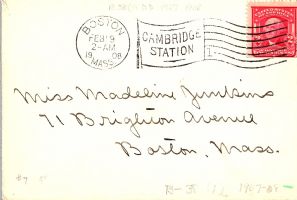 BOSTON
FEB 19
2-AM
19 08
MASS.
CAMBRIDGE
STATION
1
Miss Madeline Jenkins
71 Brighton Avenue
Boston, Mass.